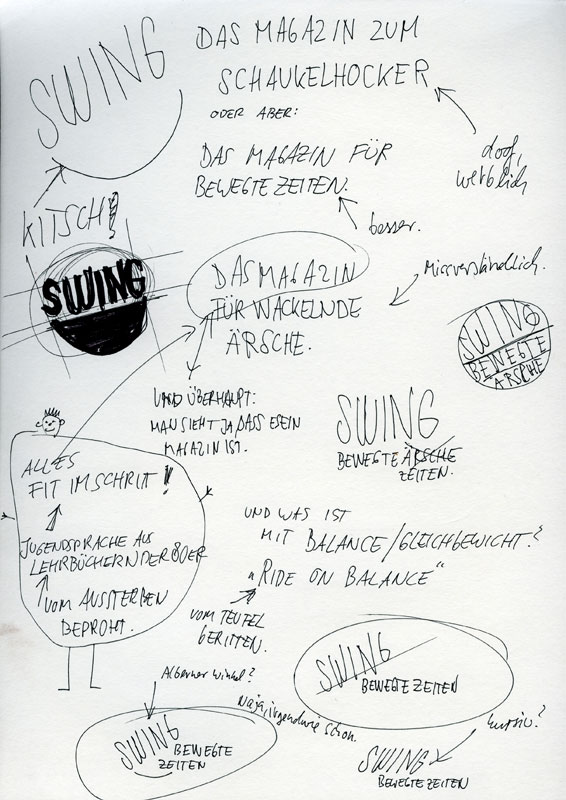 SWING
DAS MAGAZIN ZUM
SCHAUKELHOCKER
ODER ABER:
doof,
werblich
DAS MAGAZIN FÜR
BEWEGTE ZEITEN.
besser.
KITSCH!
SWING
DAS MAGAZIN
FÜR WACKELNDE
ÄRSCHE.
Missverständlich.
SWING
BEWEGTE
ÄRSCHE
UND ÜBERHAUPT:
MAN SIEHT JA, DASS ES EIN
MAGAZIN IST.
SWING
BEWEGTE ÄRSCHE
ZEITEN.
ALLES
FIT IM SCHRITT!
JUGENDSPRACHE AUS
LEHRBÜCHERN DER 80ER
VOM AUSSTERBEN
BEDROHT.
UND WAS IST
MIT BALANCE/GLEICHGEWICHT?
„RIDE ON BALANCE“
VOM TEUFEL
GERITTEN.
SWING
BEWEGTE ZEITEN
Alberner Winkel?
Naja, irgendwie schon.
SWING BEWEGTE
ZEITEN
kursiv?
SWING
BEWEGTE ZEITEN